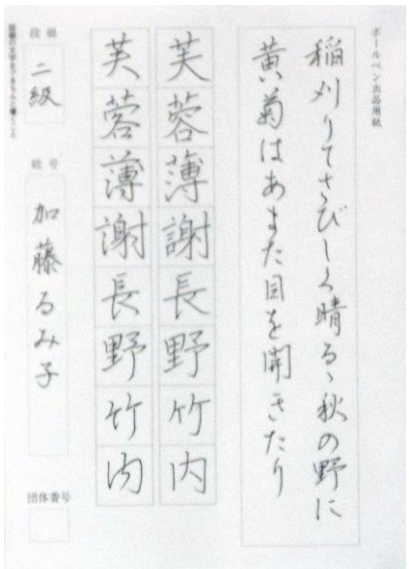 ボールペン出品用紙
稲刈りてさびしく晴るゝ秋の野に
黄菊はあまた目を開きたり
芙蓉薄謝長野竹内
芙蓉薄謝長野竹内
段級
二級
姓号
加藤るみ子
団体番号